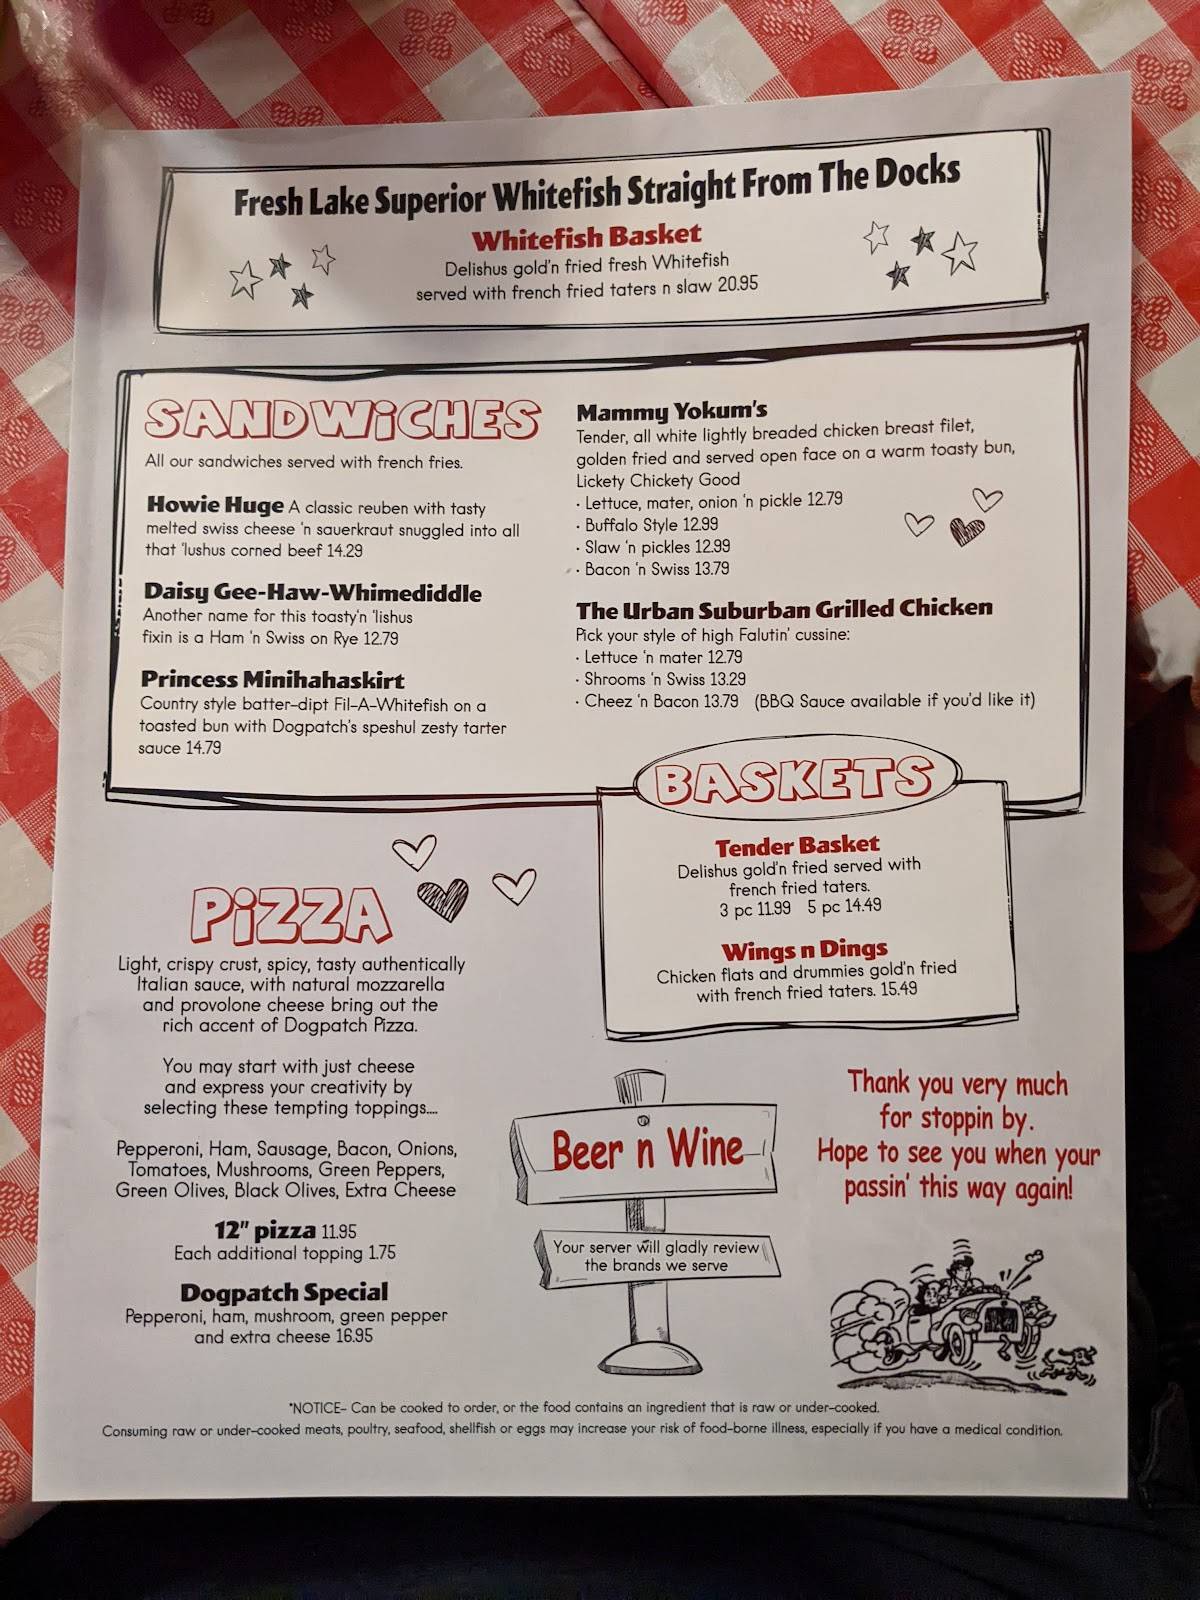 Fresh Lake Superior Whitefish Straight From The Docks
Whitefish Basket
Delishus gold'n fried fresh Whitefish
served with french fried taters n slaw 20.95
SANDWiCHES
All our sandwiches served with french fries.
Howie Huge A classic reuben with tasty
melted swiss cheese 'n sauerkraut snuggled into all
that 'lushus corned beef 14.29
Daisy Gee-Haw-Whimediddle
Another name for this toasty'n 'lishus
fixin is a Ham 'n Swiss on Rye 12.79
Princess Minihahaskirt
Country style batter-dipt Fil-A-Whitefish on a
toasted bun with Dogpatch's speshul zesty tarter
sauce 14.79
Mammy Yokum's
Tender, all white lightly breaded chicken breast filet,
golden fried and served open face on a warm toasty bun,
Lickety Chickety Good
· Lettuce, mater, onion 'n pickle 12.79
· Buffalo Style 12.99
· Slaw 'n pickles 12.99
· Bacon 'n Swiss 13.79
The Urban Suburban Grilled Chicken
Pick your style of high Falutin' cussine:
· Lettuce 'n mater 12.79
· Shrooms 'n Swiss 13.29
· Cheez 'n Bacon 13.79 (BBQ Sauce available if you'd like it)
BASKETS
Tender Basket
Delishus gold'n fried served with
french fried taters.
3 pc 11.99 5 pc 14.49
Wings n Dings
Chicken flats and drummies gold'n fried
with french fried taters. 15.49
PiZZA
Light, crispy crust, spicy, tasty authentically
Italian sauce, with natural mozzarella
and provolone cheese bring out the
rich accent of Dogpatch Pizza.
You may start with just cheese
and express your creativity by
selecting these tempting toppings....
Pepperoni, Ham, Sausage, Bacon, Onions,
Tomatoes, Mushrooms, Green Peppers,
Green Olives, Black Olives, Extra Cheese
12" pizza 11.95
Each additional topping 1.75
Dogpatch Special
Pepperoni, ham, mushroom, green pepper
and extra cheese 16.95
Beer n Wine
Your server will gladly review
the brands we serve
Thank you very much
for stoppin by.
Hope to see you when your
passin' this way again!
*NOTICE- Can be cooked to order, or the food contains an ingredient that is raw or under-cooked.
Consuming raw or under-cooked meats, poultry, seafood, shellfish or eggs may increase your risk of food-borne illness, especially if you have a medical condition.